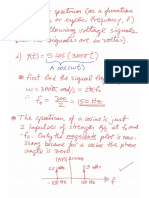 spectrum (as a function
or cyclic frequency, f)
following voltage signals
the signals are in volts)
x(t) = 5 cos(300πt)
A cos(ωt)
first find the signal frequency
ω = 300π = 2πf₀
f₀ = 300/2 = 150 Hz
The spectrum of a cosine is just
2 impulses of strength A/2 at f₀ and
-f₀. Only the magnitude plot is nec-
essary because for a cosine the phase
angle is zero.
-150 Hz
150 Hz
f